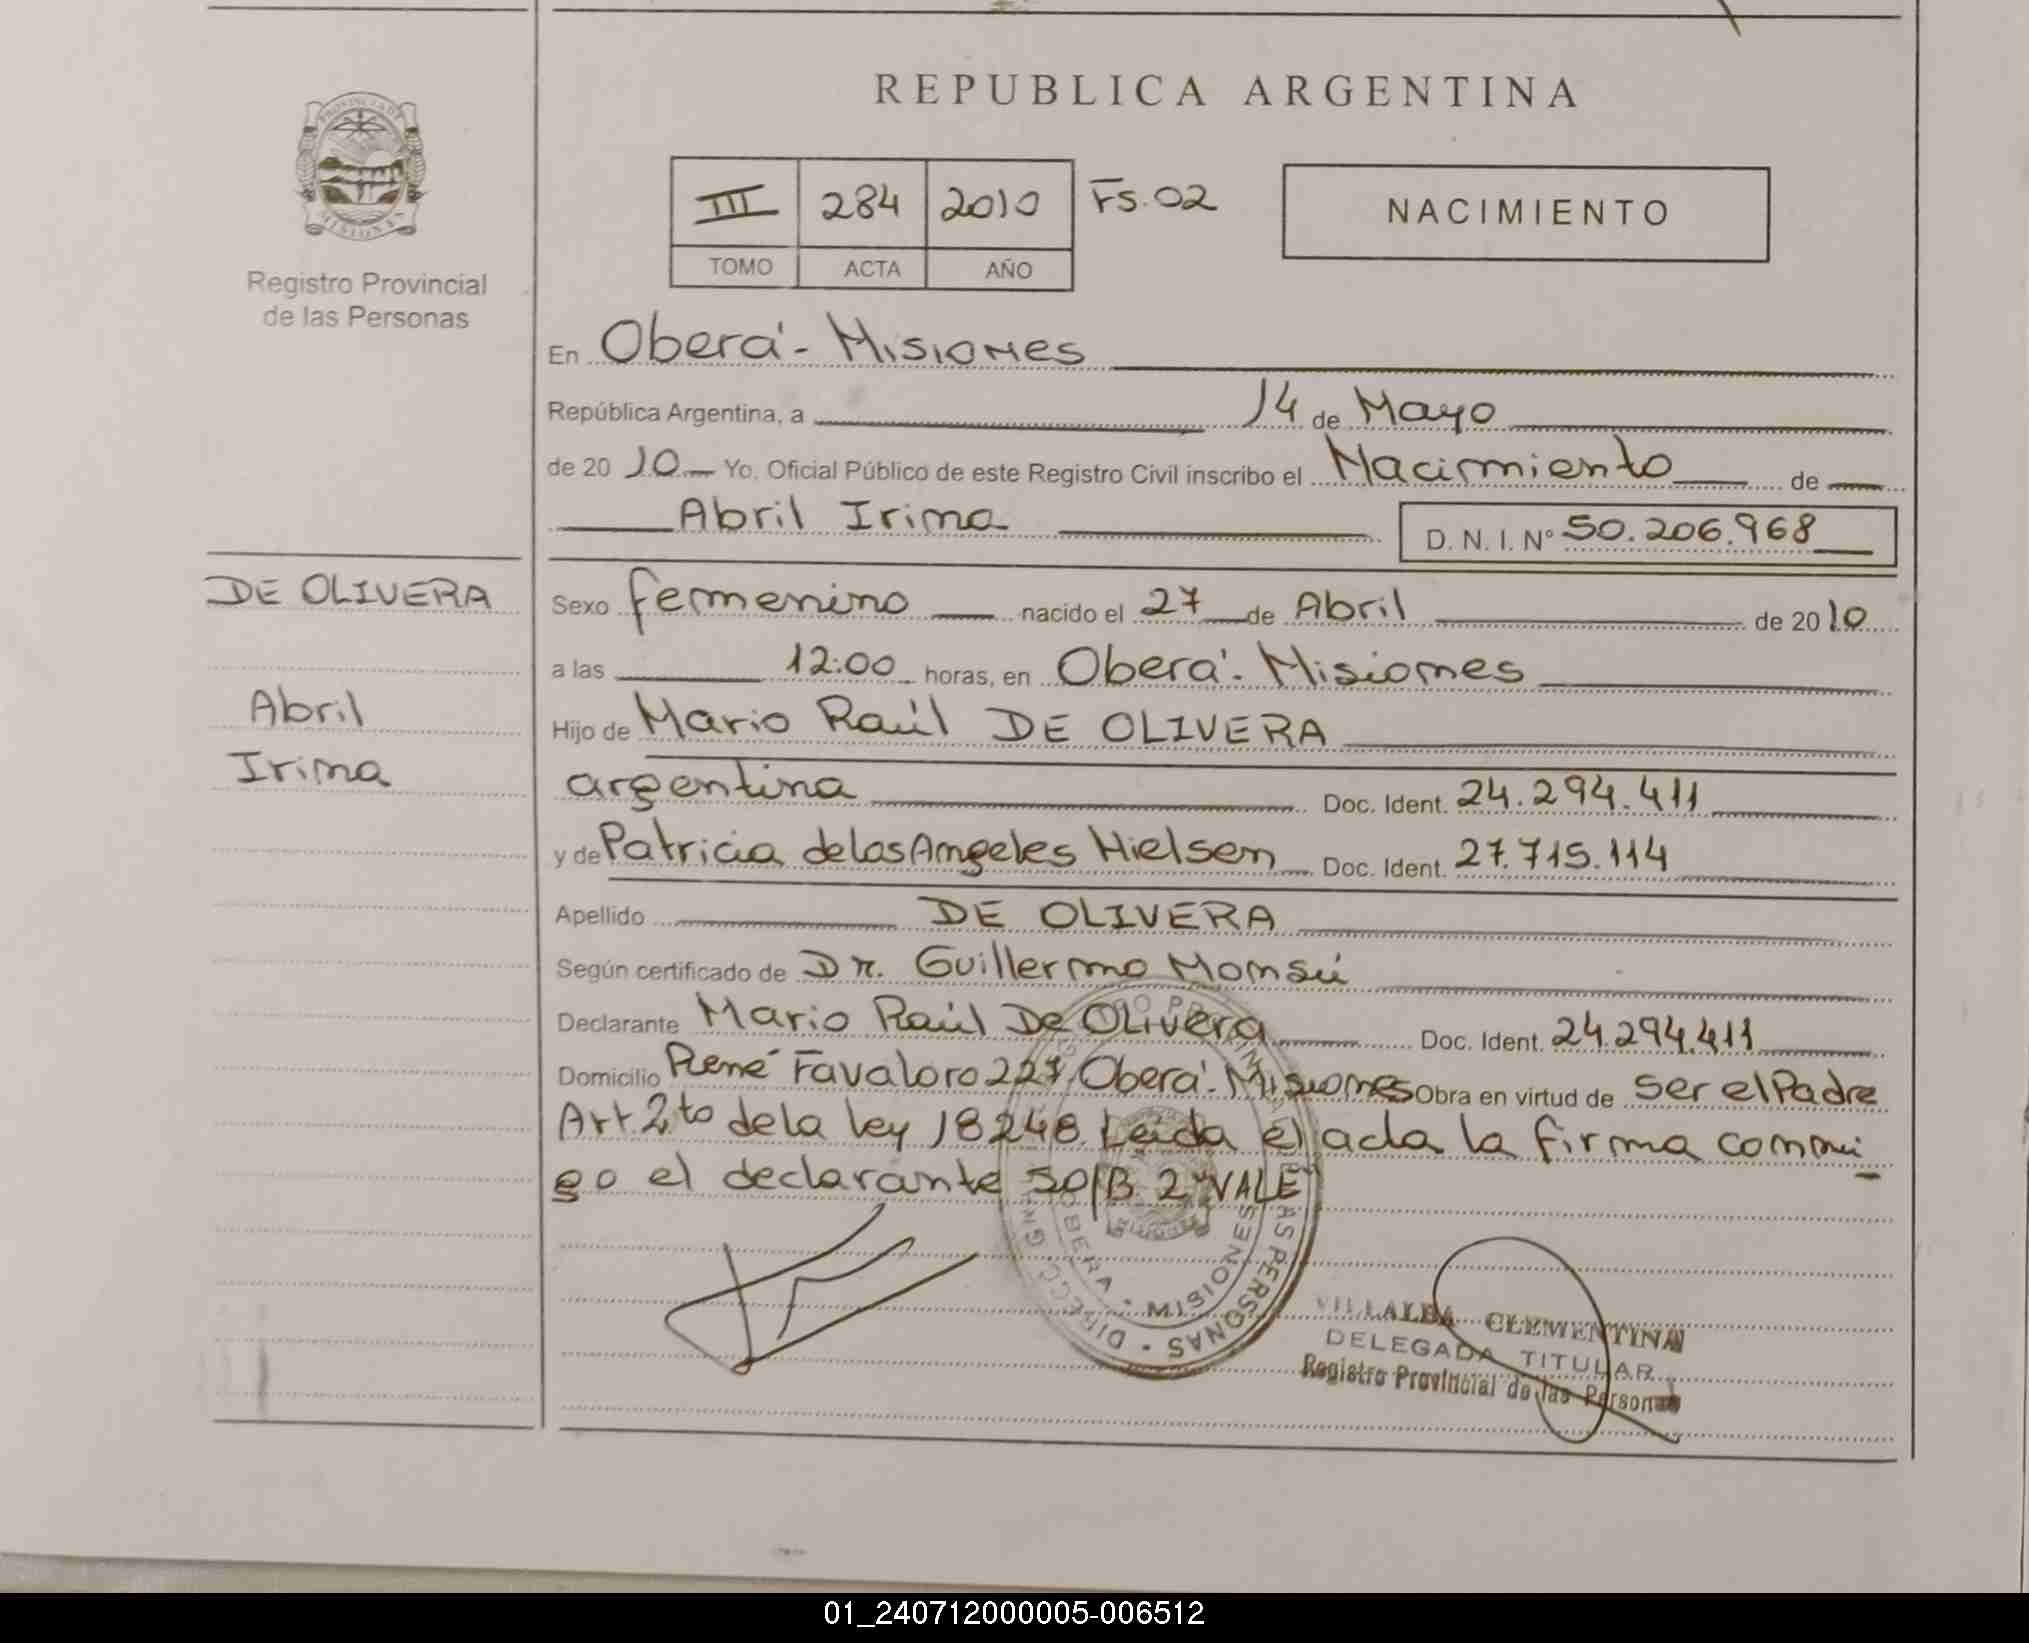 REPUBLICA ARGENTINA
PROVINCIA DE
MISIONES
Registro Provincial
de las Personas
III 284 2010 Fs. 02
TOMO ACTA AÑO
NACIMIENTO
En Oberá - Misiones
República Argentina, a 14 de Mayo
de 20 10 Yo, Oficial Público de este Registro Civil inscribo el Nacimiento de
Abril Irina
D. N. I. Nº 50.206.968
DE OLIVERA
Abril
Irina
Sexo femenino nacido el 27 de Abril de 20 10
a las 12:00 horas, en Oberá - Misiones
Hijo de Mario Raúl DE OLIVERA
argentina Doc. Ident. 24.294.411
y de Patricia de los Angeles Nielsen Doc. Ident. 27.715.114
Apellido DE OLIVERA
Según certificado de Dr. Guillermo
Declarante Mario Raúl De Olivera Doc. Ident. 24.294.411
Domicilio René Favaloro 227, Oberá - Misiones Obra en virtud de ser el Padre
Art. 2to de la ley 18248. Leída el acta la firma conmi-
go el declarante SO/B. 2 "VALE"
OBERA • MISIONES
VILLALBA CLEMENTINA
DELEGADA TITULAR
Registro Provincial de las Personas
01_240712000005-006512